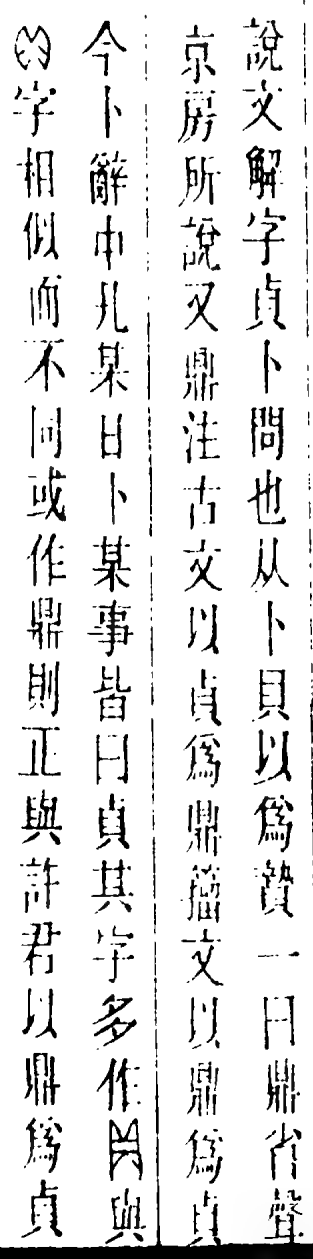 說文解字貞卜問也从卜貝以爲贄一曰鼎省聲
京房所說又鼎注古文以貞爲鼎籀文以鼎爲貞
今卜辭中凡某日卜某事皆曰貞其字多作與
字相似而不同或作鼎則正與許君以鼎爲貞